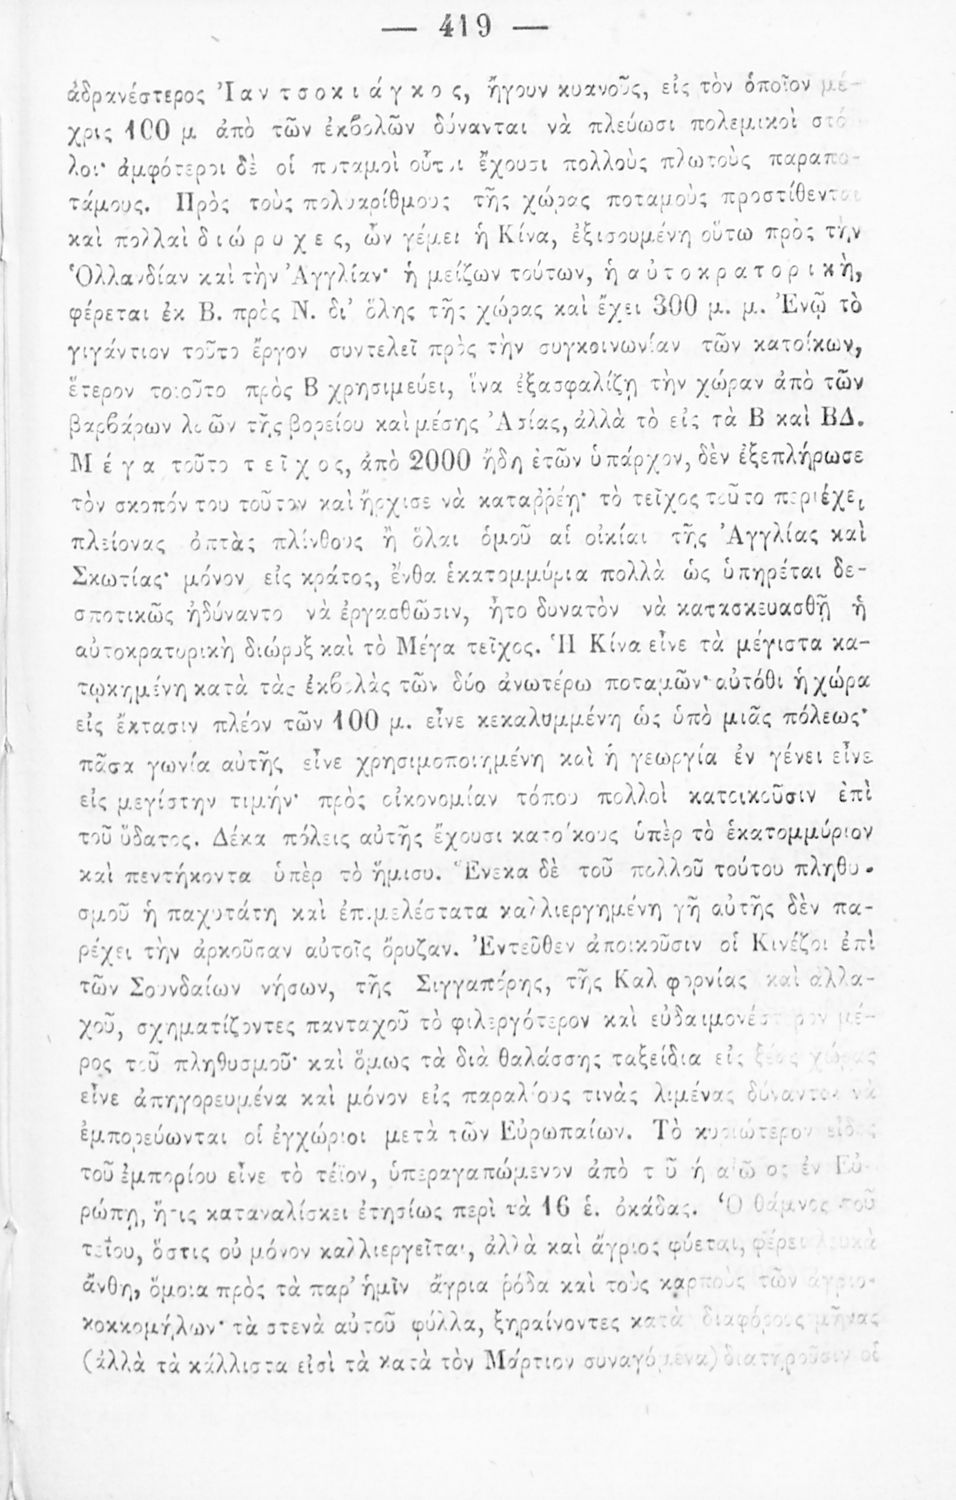 — 419 —
ἀδρανέστερος Ἰαντσοκιάγκος, ἤγουν κυανοῦς, εἰς τὸν ὁποῖον μέ-
χρις 100 μ ἀπὸ τῶν ἐκβολῶν δύνανται νὰ πλεύωσι πολεμικοὶ στό-
λοι· ἀμφότεροι δὲ οἱ ποταμοὶ οὗτοι ἔχουσι πολλοὺς πλωτοὺς παραπο-
τάμους. Πρὸς τοὺς πολυαρίθμους τῆς χώρας ποταμοὺς προστίθενται
καὶ πολλαὶ διώρυχες, ὧν γέμει ἡ Κίνα, ἐξισουμένη οὕτω πρὸς τὴν
Ὁλλανδίαν καὶ τὴν Ἀγγλίαν· ἡ μείζων τούτων, ἡ αὐτοκρατορικὴ,
φέρεται ἐκ Β. πρὸς Ν. δι' ὅλης τῆς χώρας καὶ ἔχει 300 μ. μ. Ἐνῷ τὸ
γιγάντιον τοῦτο ἔργον συντελεῖ πρὸς τὴν συγκοινωνίαν τῶν κατοίκων,
ἕτερον τοιοῦτο πρὸς Β χρησιμεύει, ἵνα ἐξασφαλίζῃ τὴν χώραν ἀπὸ τῶν
βαρβάρων λαῶν τῆς βορείου καὶ μέσης Ἀσίας, ἀλλὰ τὸ εἰς τὰ Β καὶ ΒΔ.
Μέγα τοῦτο τεῖχος, ἀπὸ 2000 ἤδη ἐτῶν ὑπάρχον, δὲν ἐξεπλήρωσε
τὸν σκοπόν του τοῦτον καὶ ἤρχισε νὰ καταῤῥέῃ· τὸ τεῖχος τοῦτο περιέχει
πλείονας ὀπτὰς πλίνθους ἢ ὅλαι ὁμοῦ αἱ οἰκίαι τῆς Ἀγγλίας καὶ
Σκωτίας· μόνον εἰς κράτος, ἔνθα ἑκατομμύρια πολλὰ ὡς ὑπηρέται δε-
σποτικῶς ἠδύναντο νὰ ἐργασθῶσιν, ἦτο δυνατὸν νὰ κατασκευασθῇ ἡ
αὐτοκρατορικὴ διώρυξ καὶ τὸ Μέγα τεῖχος. Ἡ Κίνα εἶνε τὰ μέγιστα κα-
τῳκημένη κατὰ τὰς ἐκβολὰς τῶν δύο ἀνωτέρω ποταμῶν· αὐτόθι ἡ χώρα
εἰς ἔκτασιν πλέον τῶν 100 μ. εἶνε κεκαλυμμένη ὡς ὑπὸ μιᾶς πόλεως·
πᾶσα γωνία αὐτῆς εἶνε χρησιμοποιημένη καὶ ἡ γεωργία ἐν γένει εἶνε
εἰς μεγίστην τιμήν· πρὸς οἰκονομίαν τόπου πολλοὶ κατοικοῦσιν ἐπὶ
τοῦ ὕδατος. Δέκα πόλεις αὐτῆς ἔχουσι κατοίκους ὑπὲρ τὸ ἑκατομμύριον
καὶ πεντήκοντα ὑπὲρ τὸ ἥμισυ. Ἕνεκα δὲ τοῦ πολλοῦ τούτου πληθυ-
σμοῦ ἡ παχυτάτη καὶ ἐπιμελέστατα καλλιεργημένη γῆ αὐτῆς δὲν πα-
ρέχει τὴν ἀρκοῦσαν αὐτοῖς ὄρυζαν. Ἐντεῦθεν ἀποικοῦσιν οἱ Κινέζοι ἐπὶ
τῶν Σουνδαίων νήσων, τῆς Σιγγαπόρης, τῆς Καλιφορνίας καὶ ἀλλα-
χοῦ, σχηματίζοντες πανταχοῦ τὸ φιλεργότερον καὶ εὐδαιμονέστερον μέ-
ρος τοῦ πληθυσμοῦ· καὶ ὅμως τὰ διὰ θαλάσσης ταξείδια εἰς ξένας χώρας
εἶνε ἀπηγορευμένα καὶ μόνον εἰς παραλίους τινὰς λιμένας δύνανται νὰ
ἐμπορεύωνται οἱ ἐγχώριοι μετὰ τῶν Εὐρωπαίων. Τὸ κυριώτερον εἶδος
τοῦ ἐμπορίου εἶνε τὸ τέϊον, ὑπεραγαπώμενον ἀπὸ τ ῦ ἡ ῶ ος ἐν Εὐ-
ρώπῃ, ἥτις καταναλίσκει ἐτησίως περὶ τὰ 16 ἑ. ὀκάδας. Ὁ θάμνος τοῦ
τεΐου, ὅστις οὐ μόνον καλλιεργεῖται, ἀλλὰ καὶ ἄγριος φύεται, φέρει λευκὰ
ἄνθη, ὅμοια πρὸς τὰ παρ' ἡμῖν ἄγρια ῥόδα καὶ τοὺς καρποὺς τῶν ἀγριο-
κοκκομήλων· τὰ στενὰ αὐτοῦ φύλλα, ξηραίνοντες κατὰ διαφόρους μῆνας
(ἀλλὰ τὰ κάλλιστα εἰσὶ τὰ κατὰ τὸν Μάρτιον συναγόμενα) διατηροῦσιν οἱ